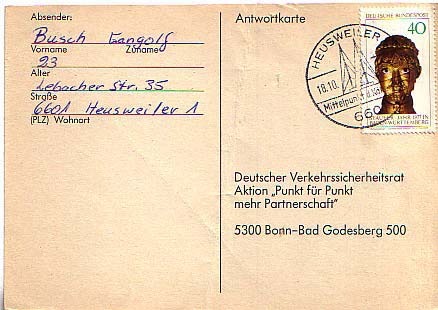 Absender:
Busch Gangolf
Vorname Zuname
23
Alter
Lebacher Str. 35
Straße
6601 Heusweiler 1
(PLZ) Wohnort
Antwortkarte
HEUSWEILER
18.10.
Mittelpunkt d.
660
DEUTSCHE BUNDESPOST
40
STAUFER-JAHR 1977 IN
BADEN-WÜRTTEMBERG
Deutscher Verkehrssicherheitsrat
Aktion „Punkt für Punkt
mehr Partnerschaft"
5300 Bonn-Bad Godesberg 500